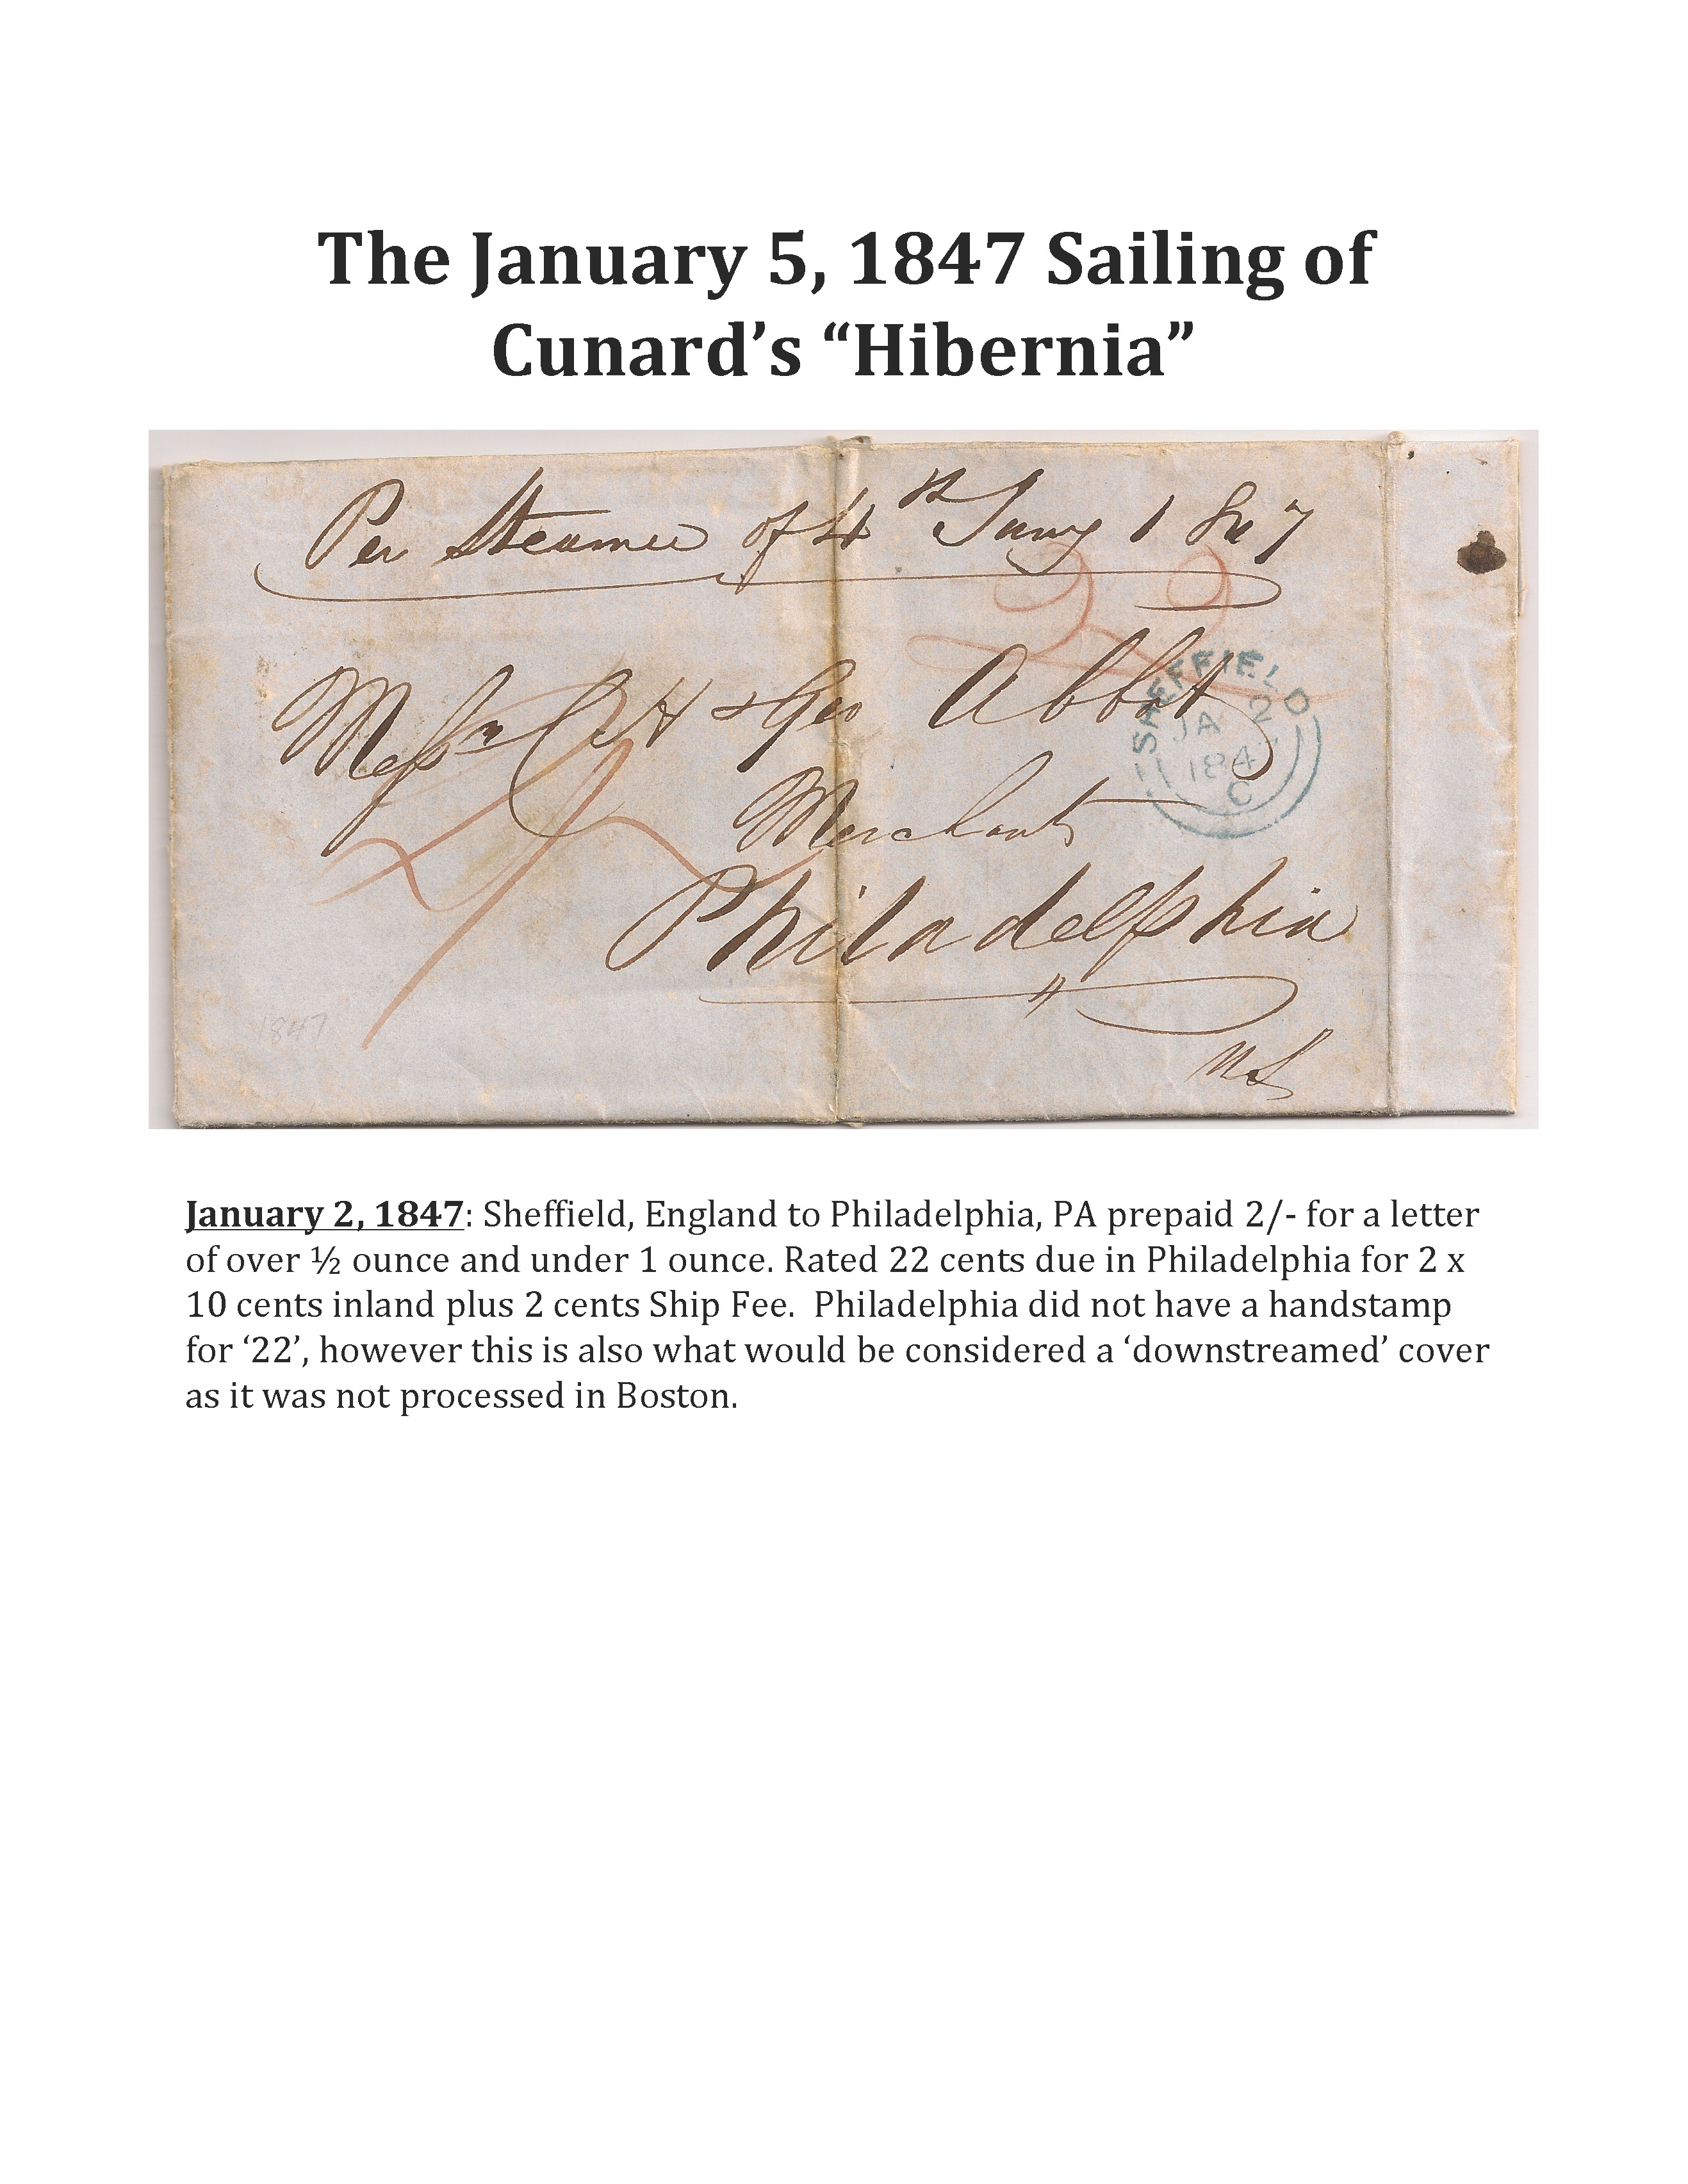 The January 5, 1847 Sailing of
Cunard’s “Hibernia”
Per Steamer of 4th Jany 1847
22
SHEFFIELD
JA 2
184
C
Messrs C H & Geo Abbot
2/
Merchants
Philadelphia
1847
January 2, 1847: Sheffield, England to Philadelphia, PA prepaid 2/- for a letter
of over ½ ounce and under 1 ounce. Rated 22 cents due in Philadelphia for 2 x
10 cents inland plus 2 cents Ship Fee.  Philadelphia did not have a handstamp
for ‘22’, however this is also what would be considered a ‘downstreamed’ cover
as it was not processed in Boston.